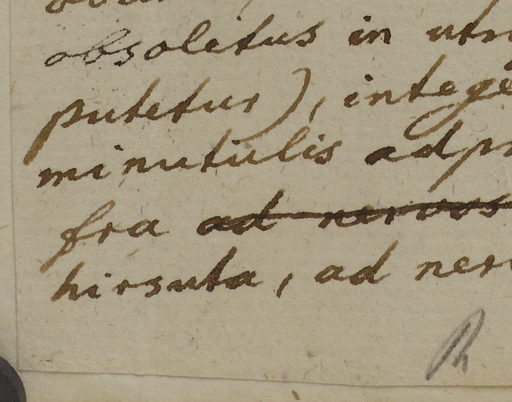 obsolitus in utr
putetur), intege
minutulis adpr
fra ad nervos
hirsuta, ad ner
R